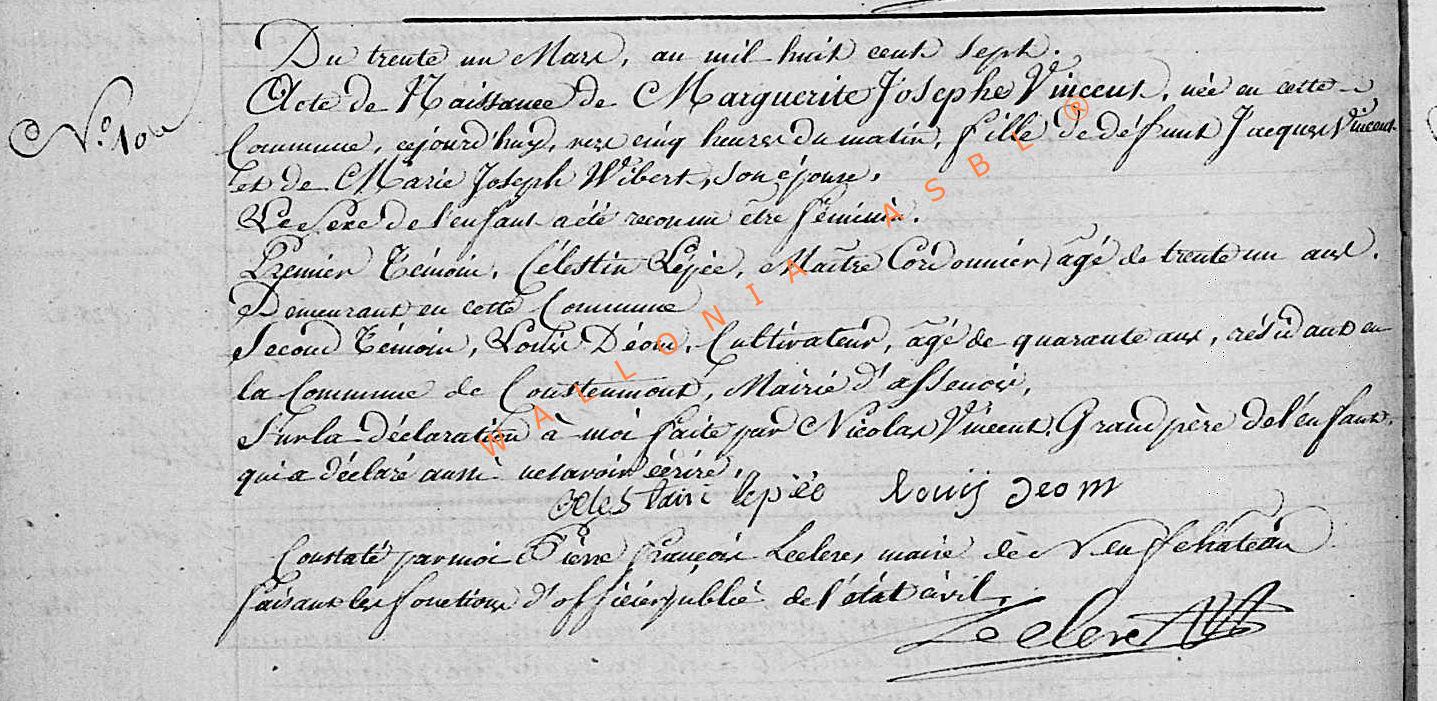 Du trente un Mars, an mil huit cent sept.
N.º 10.e
Acte de Naissance de Marguerite Josephe Vincent, née en cette
Commune, cejourd'huy, vers cinq heures du matin, fille de défunt Jacques Vincent
et de Marie Joseph Wibert, son épouse.
Le Sexe de l'enfant a été reconnu être féminin.
Premier Témoin, Célestin Lépée, Maître Cordonnier, âgé de trente un ans.
Demeurant en cette Commune
Second Témoin, Louis Déom, Cultivateur, âgé de quarante ans, résidant en
la Commune de Coustumont, Mairie d'assenois,
Sur la déclaration à moi faite par Nicolas Vincent, Grand père de l'enfant,
qui a déclaré aussi ne savoir écrire.
Celestain lepée louis deom
Constaté par moi Pierre françois Leclere, maire de Neufchâteau
faisant les fonctions d'officier public de l'état civil.
Leclere
WALLONIA ASBL ®